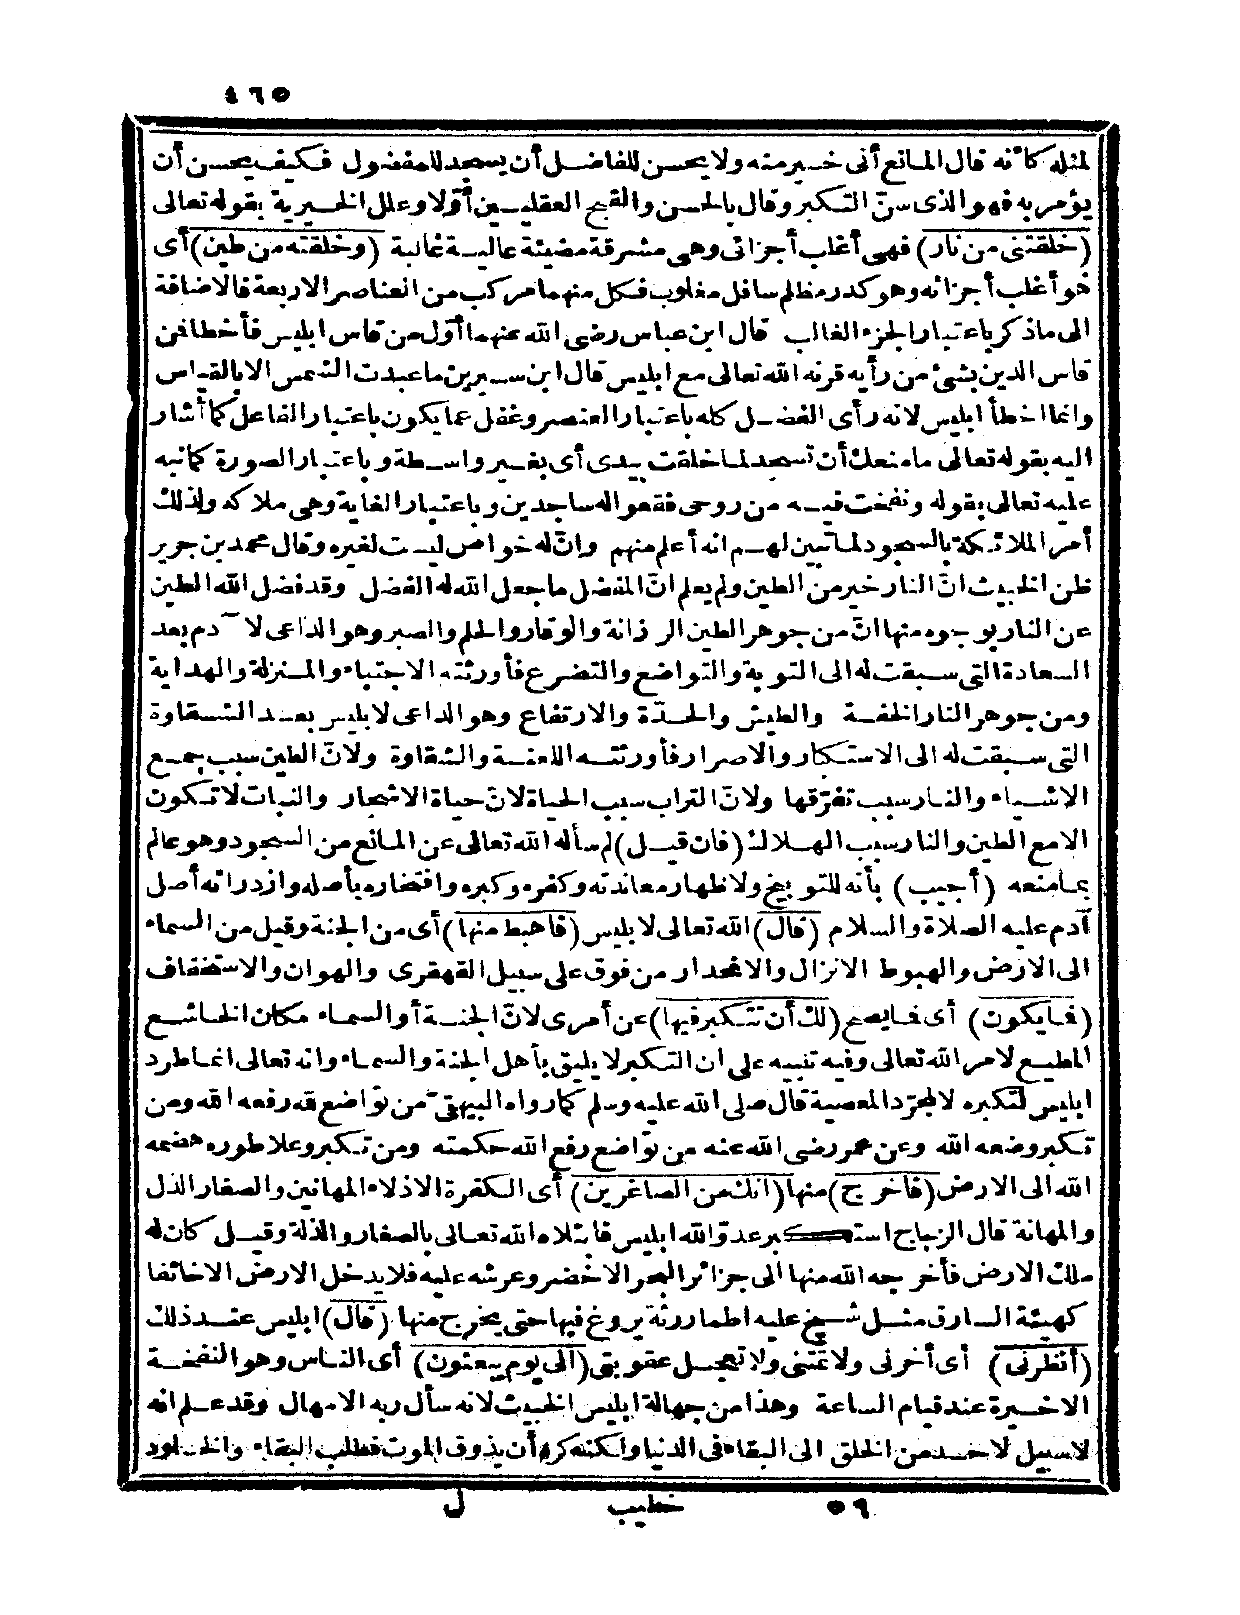 ٤٦٥
لمثله كأنه قال المانع أني خير منه ولا يحسن للفاضل أن يسجد للمفضول فكيف يحسن أن
يؤمر به فهو الذى سنّ التكبر وقال بالحسن والقبح العقليين أوّلا وعلل الخيرية بقوله تعالى
(خلقتنى من نار) فهى أغلب أجزائى وهى مشرقة مضيئة عالية غالبة (وخلقته من طين) أى
هو أغلب أجزائه وهو كدر مظلم سافل مغلوب فكل منهما مركب من العناصر الاربعة فالاضافة
الى ما ذكر باعتبار الجزء الغالب قال ابن عباس رضى الله عنهما أوّل من قاس ابليس فأخطأ فمن
قاس الدين بشئ من رأيه قرنه الله تعالى مع ابليس قال ابن سيرين ما عبدت الشمس الا بالقياس
وانما اخطأ ابليس لانه رأى الفضل كله باعتبار العنصر وغفل عما يكون باعتبار الفاعل كما أشار
اليه بقوله تعالى ما منعك أن تسجد لما خلقت بيدى أى بغير واسطة وباعتبار الصورة كما نبه
عليه تعالى بقوله ونفخت فيه من روحى فقعوا له ساجدين وباعتبار الغاية وهى ملاكه ولذلك
أمر الملائكة بالسجود لما تبين لهم انه أعلم منهم وانّ له خواص ليست لغيره وقال محمد بن جرير
ظن الخبيث انّ النار خير من الطين ولم يعلم انّ المفضل ما جعل الله له الفضل وقد فضل الله الطين
عن النار بوجوه منها انّ من جوهر الطين الرزانة والوقار والحلم والصبر وهو الداعى لآدم بعد
السعادة التى سبقت له الى التوبة والتواضع والتضرع فأورثته الاجتباء والمنزلة والهداية
ومن جوهر النار الخفة والطيش والحدّة والارتفاع وهو الداعى لابليس بعد الشقاوة
التى سبقت له الى الاستكبار والاصرار فأورثته اللعنة والشقاوة ولانّ الطين سبب جمع
الاشياء والنار سبب تفرّقها ولانّ التراب سبب الحياة لانّ حياة الاشجار والنبات لا تكون
الا مع الطين والنار سبب الهلاك (فان قيل) لم سأله الله تعالى عن المانع من السجود وهو عالم
بما منعه (أجيب) بأنه للتوبيخ ولاظهار معاندته وكفره وكبره وافتخاره بأصله وازدرائه أصل
آدم عليه الصلاة والسلام (قال) الله تعالى لابليس (فاهبط منها) أى من الجنة وقيل من السماء
الى الارض والهبوط الانزال والانحدار من فوق على سبيل القهقرى والهوان والاستخفاف
(فما يكون) أى فما يصح (لك أن تتكبر فيها) عن أمرى لانّ الجنة أو السماء مكان الخاشع
المطيع لامر الله تعالى وفيه تنبيه على ان التكبر لا يليق بأهل الجنة والسماء وانه تعالى انما طرد
ابليس لتكبره لا لمجرّد المعصية قال صلى الله عليه وسلم كما رواه البيهقىّ من تواضع لله رفعه الله ومن
تكبر وضعه الله وعن عمر رضى الله عنه من تواضع رفع الله حكمته ومن تكبر وعلا طوره هضمه
الله الى الارض (فاخرج) منها (انك من الصاغرين) أى الكفرة الاذلاء المهانين والصغار الذل
والمهانة قال الزجاج استكبر عدوّ الله ابليس فابتلاه الله تعالى بالصغار والذلة وقيل كان له
ملك الارض فأخرجه الله منها الى جزائر البحر الاخضر وعرشه عليه فلا يدخل الارض الا خائفا
كهيئة السارق مثل شيخ عليه اطمار رثة يروغ فيها حتى يخرج منها (قال) ابليس عند ذلك
(أنظرنى) أى أخرنى ولا تمتنى ولا تعجل عقوبتى (الى يوم يبعثون) أى الناس وهو النفخة
الاخيرة عند قيام الساعة وهذا من جهالة ابليس الخبيث لانه سأل ربه الامهال وقد علم انه
لا سبيل لاحد من الخلق الى البقاء فى الدنيا ولكنه كره أن يذوق الموت فطلب البقاء والخلود
٥٩ خطيب ل